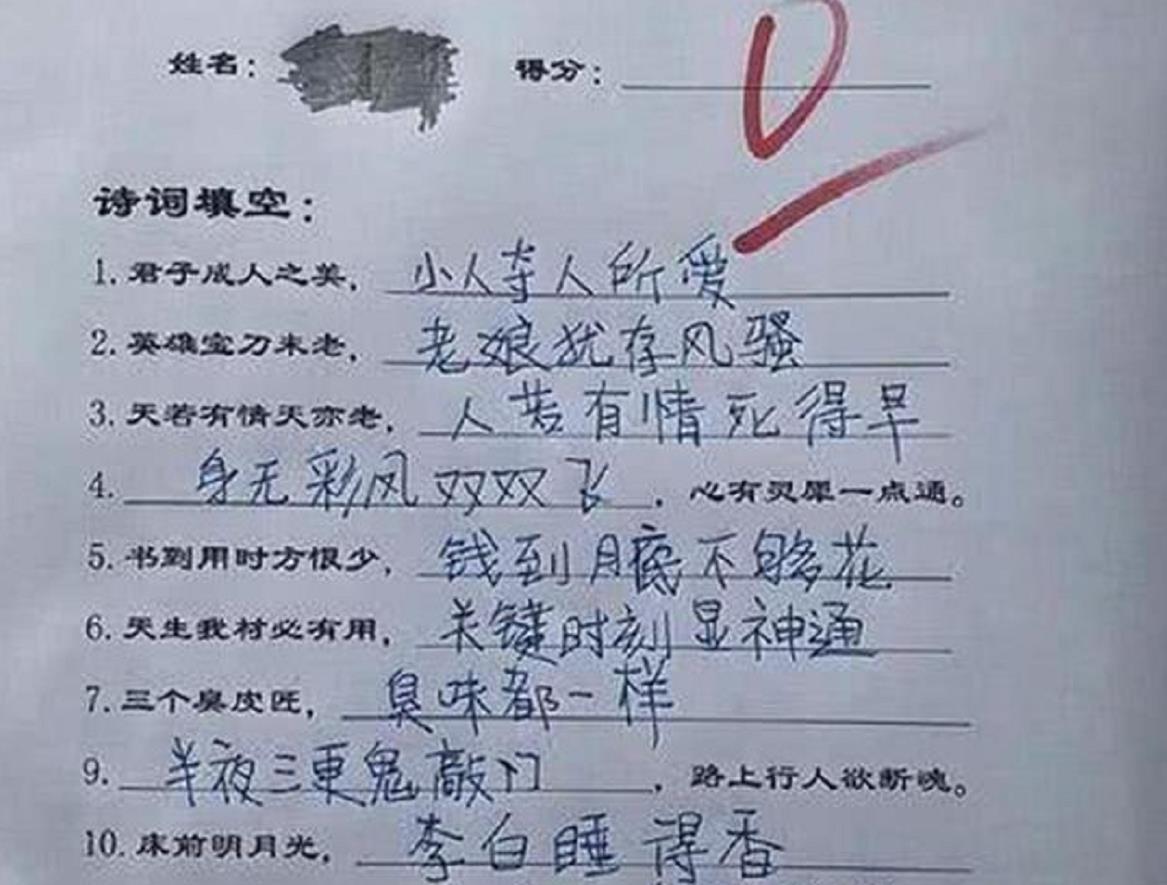 姓名： 得分： 0
诗词填空：
1. 君子成人之美，小人夺人所爱
2. 英雄宝刀未老，老娘犹存风骚
3. 天若有情天亦老，人若有情死得早
4. 身无彩风双双飞，心有灵犀一点通。
5. 书到用时方恨少，钱到月底不够花
6. 天生我材必有用，关键时刻显神通
7. 三个臭皮匠，臭味都一样
9. 半夜三更鬼敲门，路上行人欲断魂。
10. 床前明月光，李白睡得香